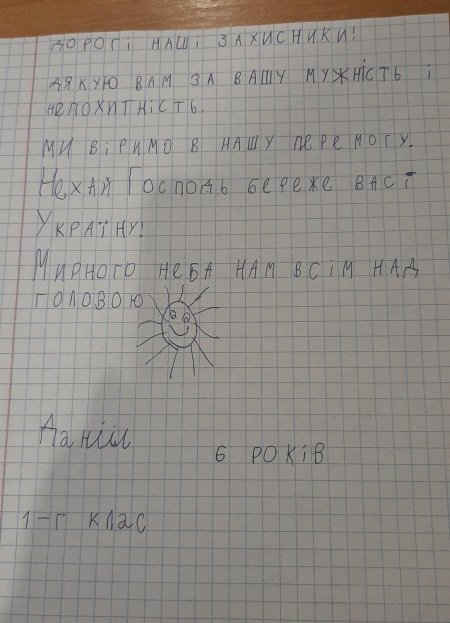 ДОРОГІ НАШІ ЗАХИСНИКИ!
ДЯКУЮ ВАМ ЗА ВАШУ МУЖНІСТЬ І
НЕПОХИТНІСТЬ.
МИ ВІРИМО В НАШУ ПЕРЕМОГУ.
НЕХАЙ ГОСПОДЬ БЕРЕЖЕ ВАС І
УКРАЇНУ!
МИРНОГО НЕБА НАМ ВСІМ НАД
ГОЛОВОЮ
Даніїл
6 РОКІВ
1-Г КЛАС